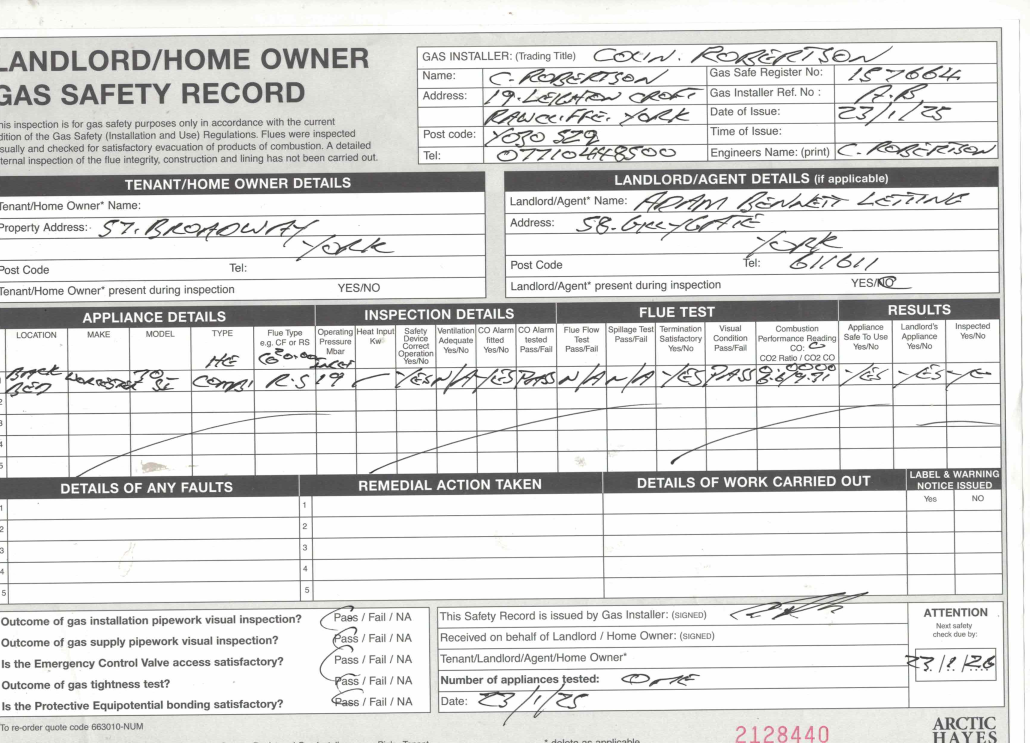 LANDLORD/HOME OWNER
GAS SAFETY RECORD
his inspection is for gas safety purposes only in accordance with the current
dition of the Gas Safety (Installation and Use) Regulations. Flues were inspected
sually and checked for satisfactory evacuation of products of combustion. A detailed
ternal inspection of the flue integrity, construction and lining has not been carried out.
GAS INSTALLER: (Trading Title) COLIN. ROBERTSON
Name: C. ROBERTSON
Gas Safe Register No: 157664
Address: 19. LEIGHTON CROFT
Gas Installer Ref. No : A.B
RAWCLIFFE. YORK
Date of Issue: 23/1/25
Post code: YO30 5ZQ
Time of Issue:
Tel: 07710448500
Engineers Name: (print) C. ROBERTSON
TENANT/HOME OWNER DETAILS
Tenant/Home Owner* Name:
Property Address: 57. BROADWAY
YORK
Post Code Tel:
Tenant/Home Owner* present during inspection YES/NO
LANDLORD/AGENT DETAILS (if applicable)
Landlord/Agent* Name: ADAM BENNETT LETTING
Address: 58. GREYGATE
YORK
Post Code Tel: 611611
Landlord/Agent* present during inspection YES/NO
APPLIANCE DETAILS INSPECTION DETAILS FLUE TEST RESULTS
LOCATION
MAKE
MODEL
TYPE
Flue Type
e.g. CF or RS
Operating
Pressure
Mbar
Heat Input
Kw
Safety
Device
Correct
Operation
Yes/No
Ventilation
Adequate
Yes/No
CO Alarm
fitted
Yes/No
CO Alarm
tested
Pass/Fail
Flue Flow
Test
Pass/Fail
Spillage Test
Pass/Fail
Termination
Satisfactory
Yes/No
Visual
Condition
Pass/Fail
Combustion
Performance Reading
CO:
CO2 Ratio / CO2 CO
Appliance
Safe To Use
Yes/No
Landlord's
Appliance
Yes/No
Inspected
Yes/No
HE INLET
BACK
BED WORCESTER COMBI R.S 19 YES N/A YES PASS N/A N/A YES PASS YES YES
2
3
4
5
DETAILS OF ANY FAULTS REMEDIAL ACTION TAKEN DETAILS OF WORK CARRIED OUT LABEL & WARNING
NOTICE ISSUED
Yes NO
1 1
2 2
3 3
4 4
5 5
Outcome of gas installation pipework visual inspection? Pass / Fail / NA
Outcome of gas supply pipework visual inspection? Pass / Fail / NA
Is the Emergency Control Valve access satisfactory? Pass / Fail / NA
Outcome of gas tightness test? Pass / Fail / NA
Is the Protective Equipotential bonding satisfactory? Pass / Fail / NA
This Safety Record is issued by Gas Installer: (SIGNED)
Received on behalf of Landlord / Home Owner: (SIGNED)
Tenant/Landlord/Agent/Home Owner*
Number of appliances tested: ONE
Date: 23/1/25
ATTENTION
Next safety
check due by:
23/1/26
To re-order quote code 663010-NUM
* delete as applicable
2128440
ARCTIC
HAYES